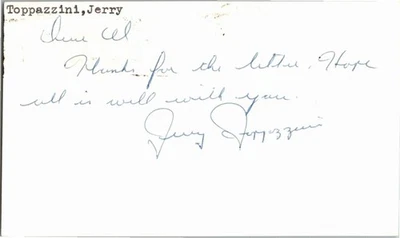 Toppazzini,Jerry
Dear Al.
Thanks for the letter. Hope
all is well with you.
Jerry Toppazzini